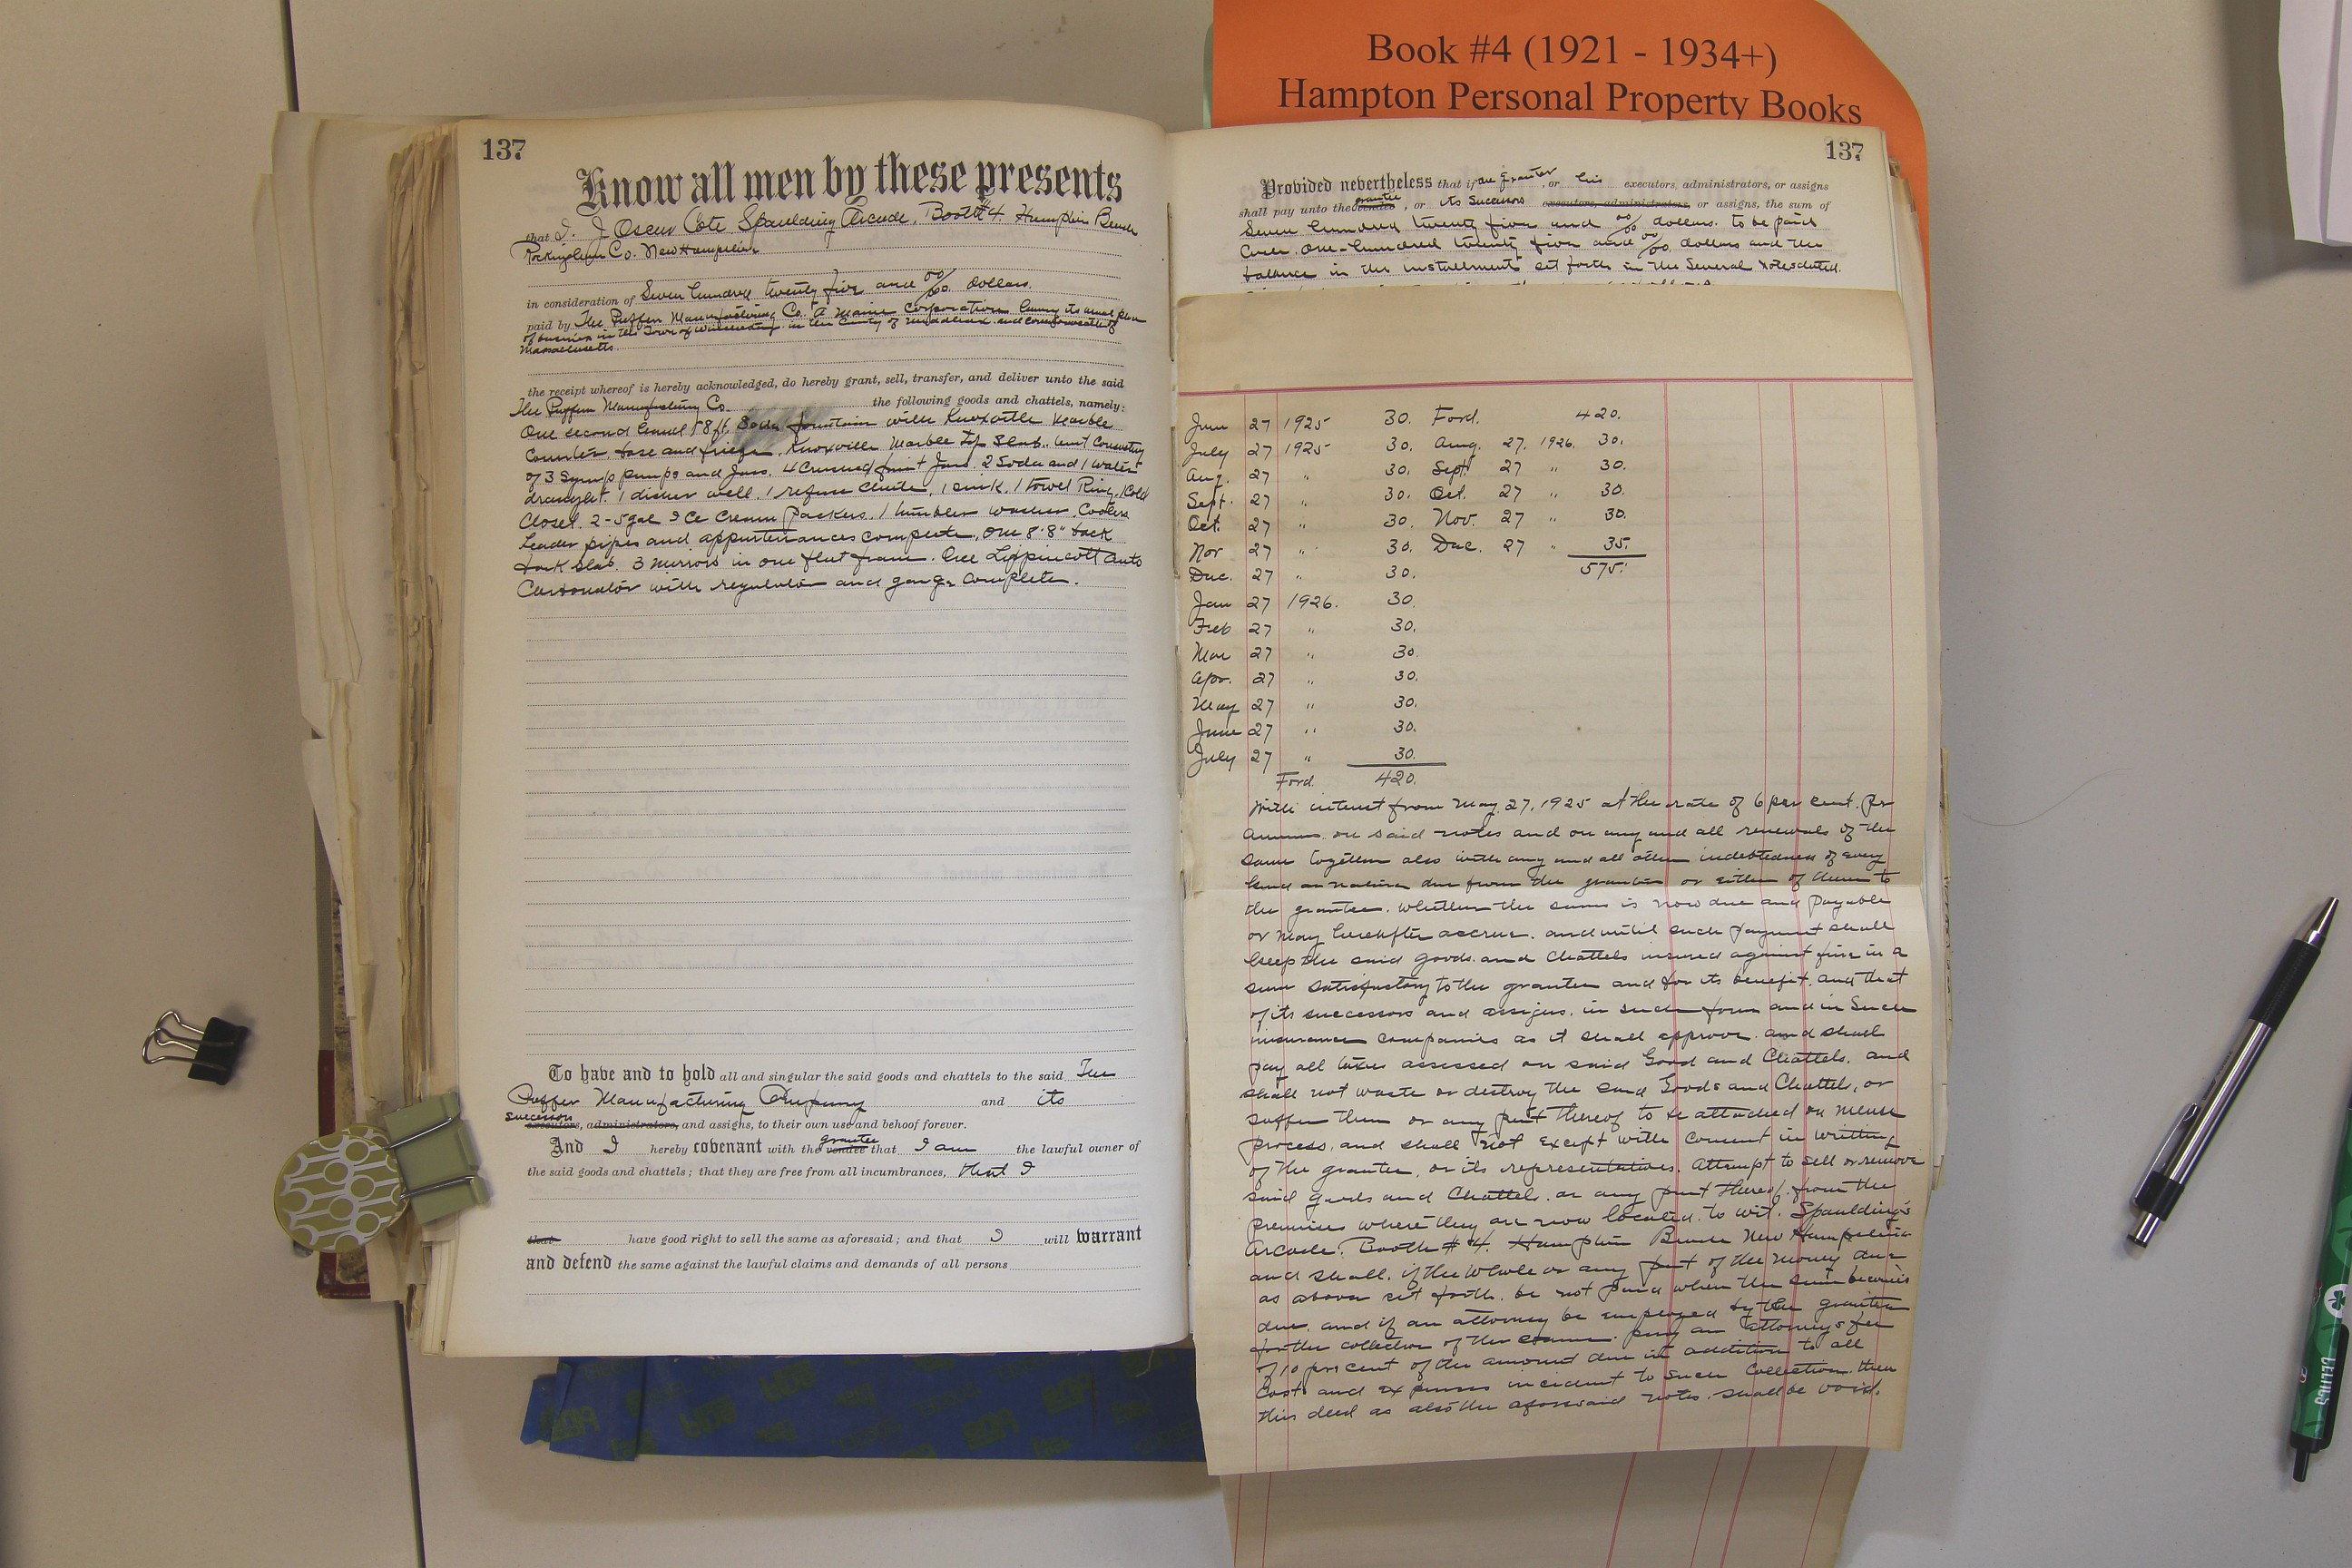 Book #4 (1921 - 1934+)
Hampton Personal Property Books
137
Know all men by these presents
that I. J Oscar Cote Spaulding Arcade. Booth #4. Hampton Beach
Rockingham Co. New Hampshire
in consideration of Seven hundred twenty five and 00/00 dollars.
paid by The Puffer Manufacturing Co. A Maine Corporation having its usual place
of business in the Town of Winchester in the County of Middlesex and Commonwealth of
Massachusetts
the receipt whereof is hereby acknowledged, do hereby grant, sell, transfer, and deliver unto the said
The Puffer Manufacturing Co. the following goods and chattels, namely:
One second hand 8 ft. Soda fountain with Knoxville Marble
Counter, base and frieze, Knoxville Marble Top Slab.
of 3 Syrup pumps and Jars. 4 Crushed fruit Jars. 2 Soda and 1 water
draught. 1 disher well. 1 refuse chute. 1 sink. 1 towel Ring. 1 Cold
Closet. 2-5 gal Ice Cream Packers. 1 tumbler washer. Coolers
Leader pipes and appurtenances complete, one 8'8" back
back slab. 3 Mirrors in one flat frame. One Lippincott Auto
Carbonator with regulator and gauge complete.
To have and to hold all and singular the said goods and chattels to the said The
Puffer Manufacturing Company and its
successors
executors, administrators, and assigns, to their own use and behoof forever.
And I hereby covenant with the grantee vendee that I am the lawful owner of
the said goods and chattels; that they are free from all incumbrances, that I
that have good right to sell the same as aforesaid; and that I will warrant
and defend the same against the lawful claims and demands of all persons
137
Provided nevertheless that if grantor, or his executors, administrators, or assigns
shall pay unto the grantee vendee, or its Successors executors, administrators, or assigns, the sum of
Seven hundred twenty five and 00/00 dollars. to be paid
One-hundred twenty five and 00/00 dollars and the
balance in the installments set forth in the Several notes dated
June 27 1925 30. Ford. 420.
July 27 1925 30. Aug. 27. 1926. 30.
Aug. 27 " 30. Sept. 27 " 30.
Sept. 27 " 30. Oct. 27 " 30.
Oct. 27 " 30. Nov. 27 " 30.
Nov 27 " 30. Dec. 27 " 35.
Dec. 27 " 30. 575.
Jan 27 1926. 30.
Feb 27 " 30.
Mar 27 " 30.
Apr. 27 " 30.
May 27 " 30.
June 27 " 30.
July 27 " 30.
Ford. 420.
With interest from May 27, 1925 at the rate of 6 per cent. per
annum on said notes and on any and all renewals of the
same together also with any and all other indebtedness of every
kind or nature due from the grantor or either of them to
the grantee. whether the same is now due and payable
or may hereafter accrue. and until such payment shall
keep the said goods and Chattels insured against fire in a
sum satisfactory to the grantee and for its benefit. and that
of its successors and assigns. in such form and in Such
insurance companies as it shall approve. and shall
pay all taxes assessed on said Good and Chattels. and
shall not waste or destroy the said Goods and Chattels, or
suffer them or any part thereof to be attached on mesne
process, and shall not except with consent in writting
of the grantee, or its representatives. Attempt to sell or remove
said goods and Chattels. or any part thereof. from the
premises where they are now located. to wit. Spaulding's
Arcade. Booth #4. Hampton Beach New Hampshire
and shall, if the whole or any part of the money due
as above set forth. be not paid when the same becomes
due. and if an attorney be employed by the grantee
for the collection of the same. pay an attorneys fee
of 10 per cent of the amount due in addition to all
Cost and expenses incident to such Collection. then
this deed as also the aforesaid notes. shall be void.